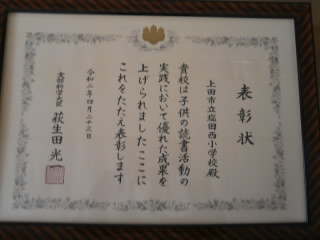 表彰状
上田市立塩田西小学校殿
貴校は子供の読書活動の
実践において優れた成果を
上げられましたここに
これをたたえ表彰します
令和二年四月二十三日
文部科学大臣 萩生田光一